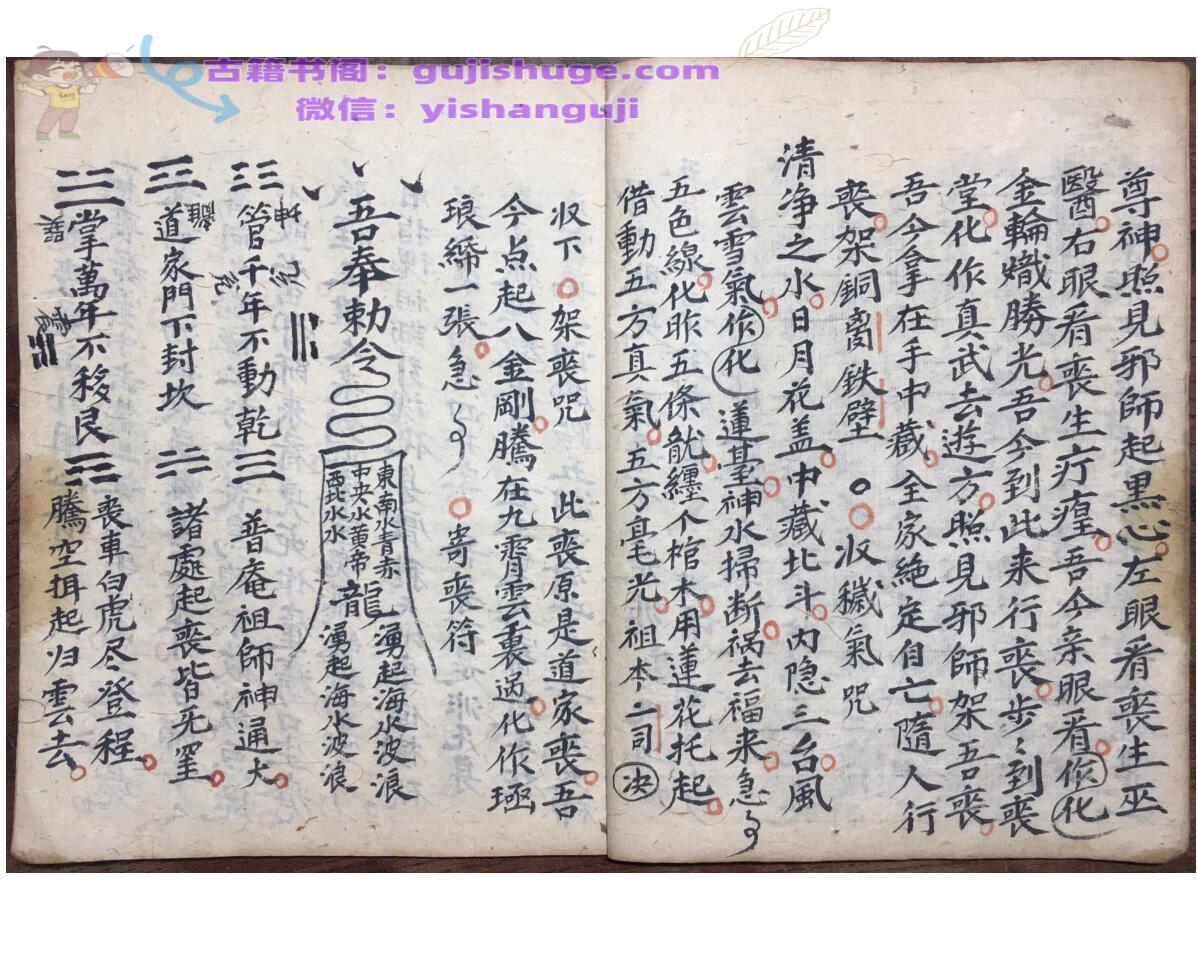 古籍书阁：gujishuge.com
微信：yishanguji
尊神照見邪師起黒心左眼看喪生巫
醫右眼看喪生疔瘟吾今亲眼看作化
金輪熾勝光吾今到此来行喪步〻到喪
堂化作真武去遊方照見邪師架吾喪
吾今拿在手中藏全家絶定自亡隨人行
喪架銅鐵壁 收穢氣咒
清净之水日月花盖中藏北斗内隐三台風
雲雪氣作化 蓮基神水掃断祸去福来急
五色線化昨五條龍纏个棺木用蓮花托起
借動五方真氣五方毫光祖本二司 决
收下 架喪咒 此喪原是道家喪吾
今点起八金剛騰在九霄雲裏过化作
琅 一張急 寄喪符
吾奉勅令
東南水青赤
中央水黄帝
西北水水
龍
湧起海水波浪
湧起海水波浪
坤
管千年不動乾 普庵祖師神通大
離
道家門下封坎 諸處起喪皆无
巽 震
掌萬年不移艮 喪車白虎尽登程
騰空 起归雲去